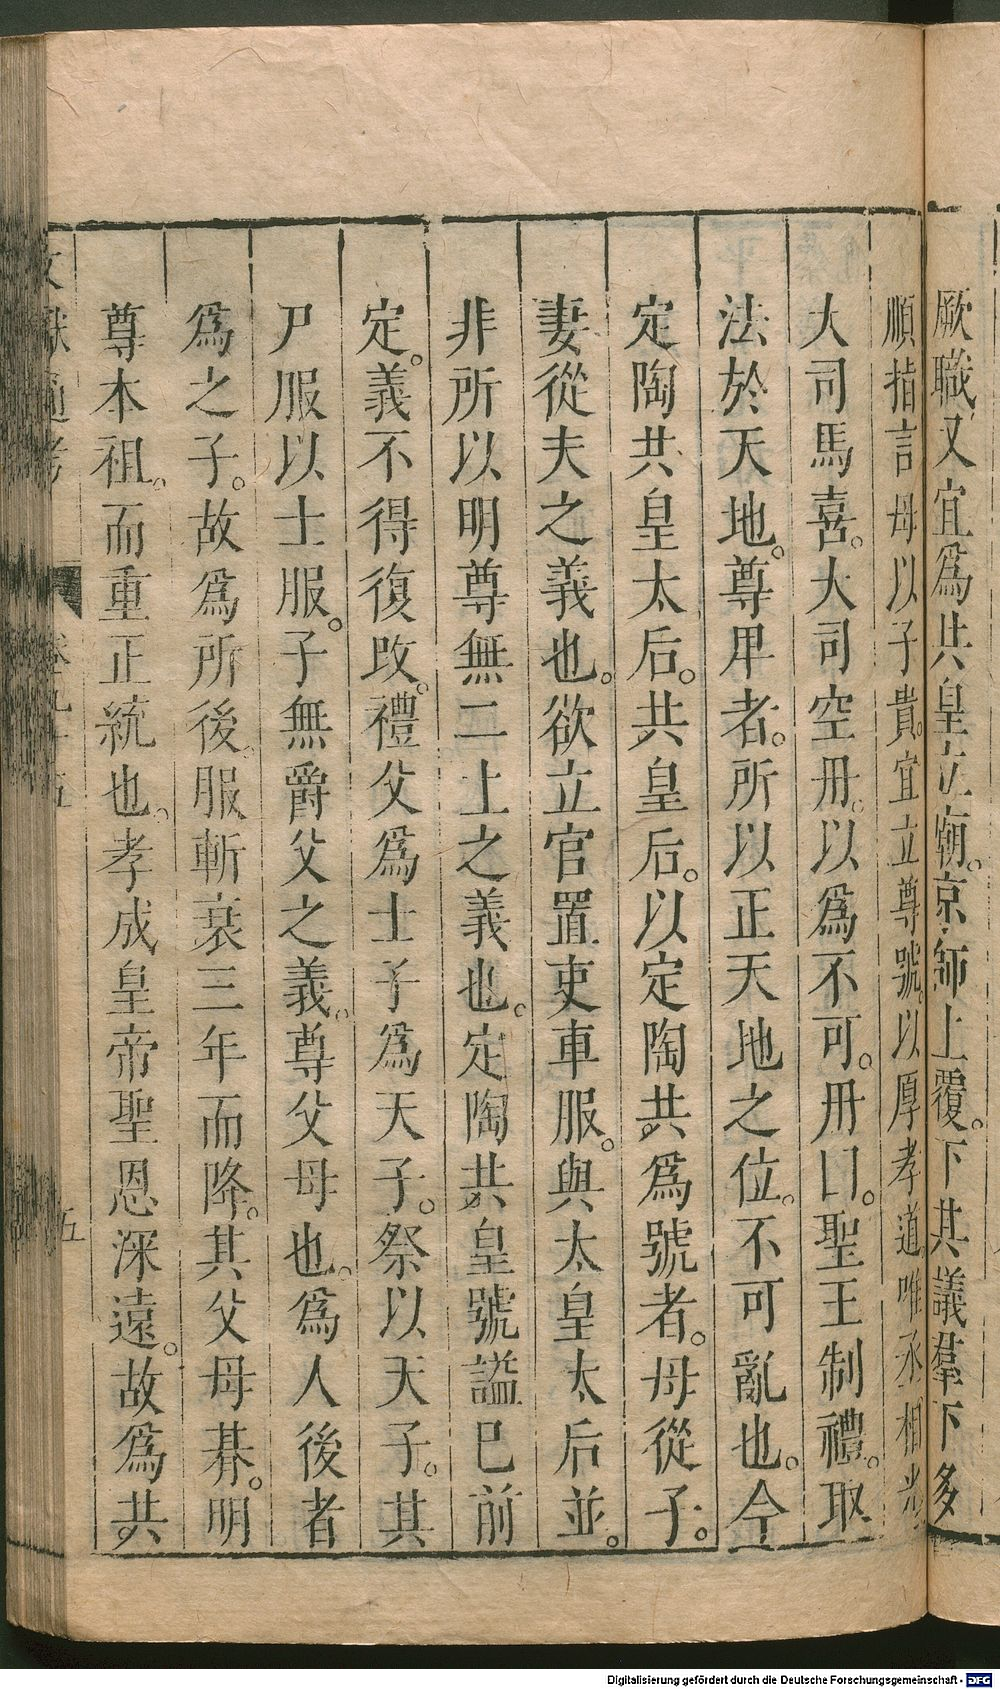 厥職又宜爲共皇立廟。京師上覆。下其議羣下多
順指言母以子貴。宜立尊號。以厚孝道唯丞相光
大司馬喜。大司空丹。以爲不可。丹曰。聖王制禮。取
法於天地。尊卑者。所以正天地之位。不可亂也。今
定陶共皇太后。共皇后。以定陶共爲號者。母從子。
妻從夫之義也。欲立官置吏車服。與太皇太后並。
非所以明尊無二上之義也。定陶共皇號謚已前
定。義不得復改。禮父爲士子爲天子。祭以天子。其
尸服以士服。子無爵父之義。尊父母也。爲人後者
爲之子。故爲所後服斬衰三年而降。其父母朞。明
尊本祖。而重正統也。孝成皇帝聖恩深遠。故爲共
五
Digitalisierung gefördert durch die Deutsche Forschungsgemeinschaft - DFG